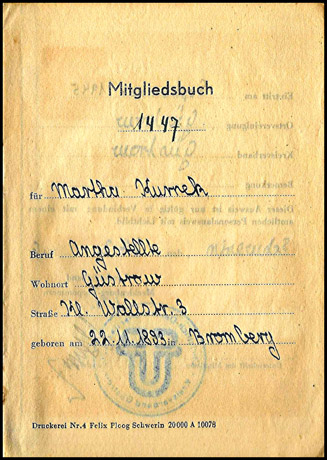 Mitgliedsbuch
1447
für Martha Kurnek
Beruf Angestellte
Wohnort Güstrow
Straße Kl. Wallstr. 3
geboren am 22.11.1893 in Bromberg
Druckerei Nr. 4 Felix Ploog Schwerin 20000 A 10078